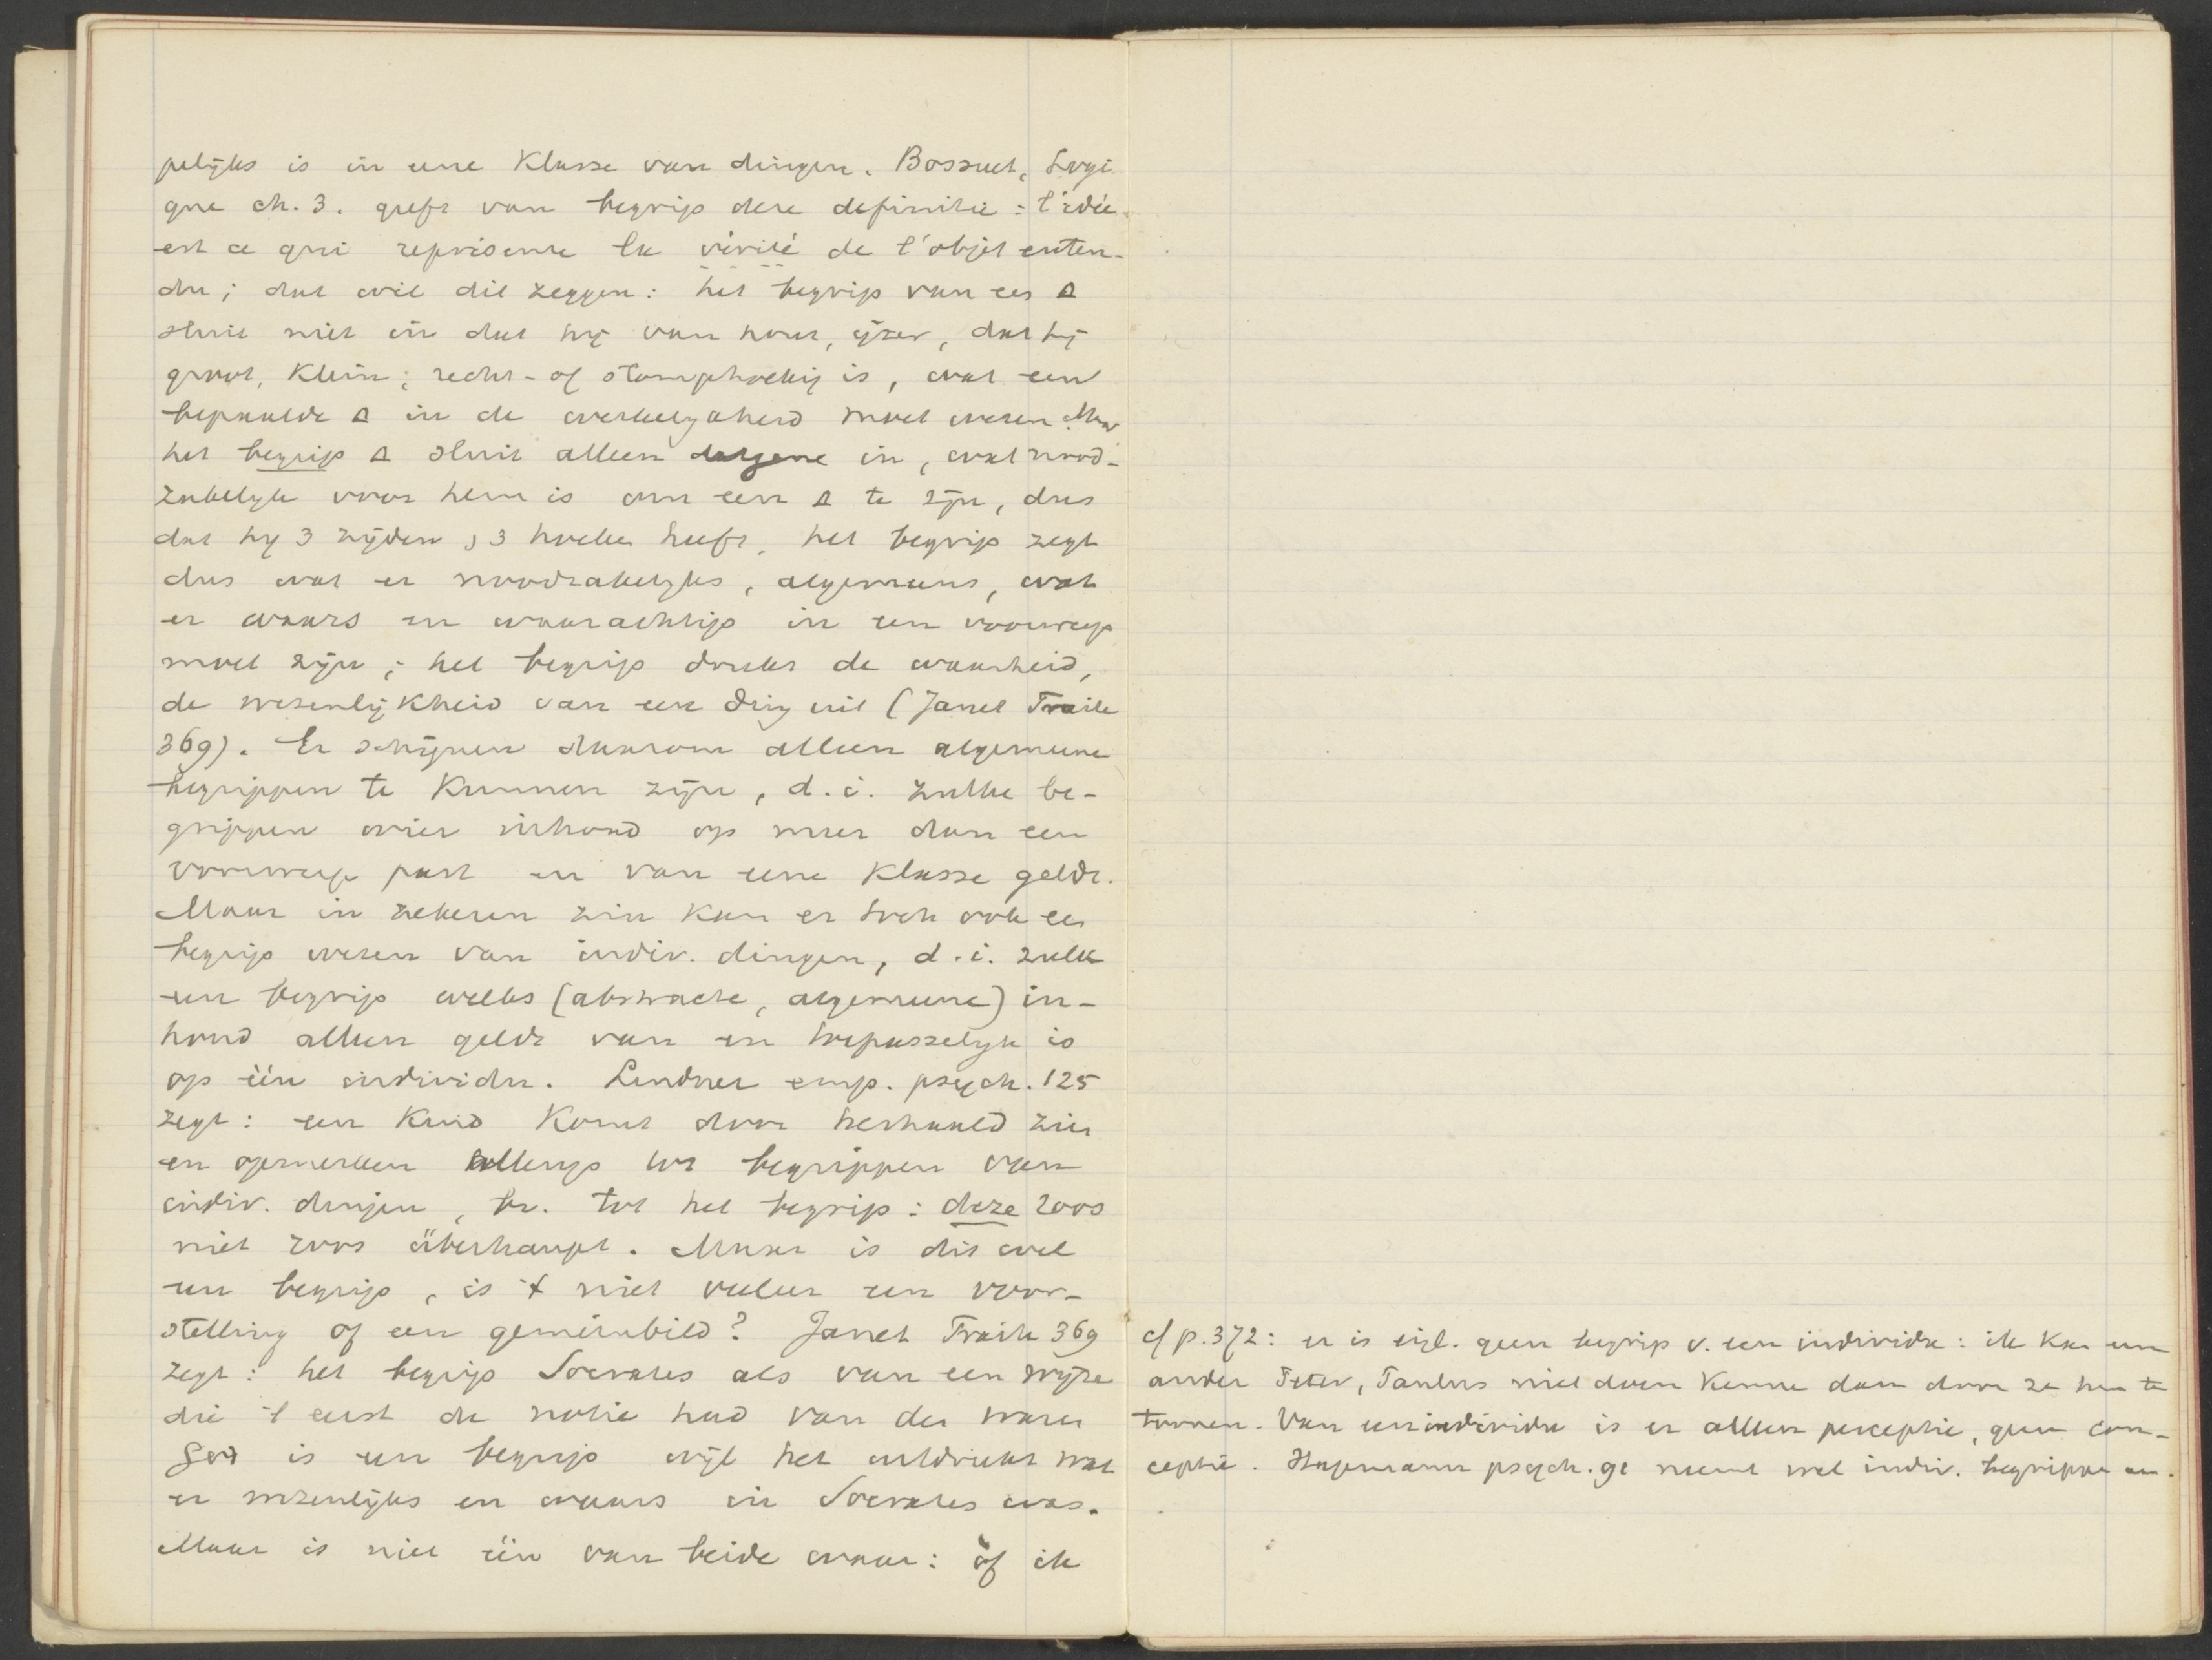 pelijks is in eene Klasse van dingen. Bossuet, Logi
que ch. 3. geeft van begrip deze definitie: l'idée
est ce qui représente la vérité de l'objet enten-
du; dat wil dit zeggen: het begrip van een Δ
sluit niet in dat hij van hout, ijzer, dat hij
groot, Klein; recht- of stomphoekig is, wat een
bepaalde Δ in de werkelijkheid moet wezen. Maar
het begrip Δ sluit alleen datgene in, wat nood-
zakelijk voor hem is om een Δ te zijn, dus
dat hij 3 zijden, 3 hoeken heeft, het begrip zegt
dus wat er noodzakelijks, algemeens, wat
er waars en waarachtigs in een voorwerp
moet zijn; het begrip drukt de waarheid,
de wezenlijkheid van een ding uit (Janet Traité
369). Er schijnen daarom alleen algemeene
begrippen te Kunnen zijn, d.i. zulke be-
grippen wier inhoud op meer dan een
voorwerp past en van eene Klasse geldt.
Maar in zekeren zin Kan er toch ook een
begrip wezen van indiv. dingen, d.i. zulk
een begrip welks (abstracte, algemeene) in-
houd alleen geldt van en toepasselijk is
op één individu. Lindner emp. psych. 125
zegt: een Kind Komt door herhaald zien
en opmerken allengs tot begrippen van
indiv. dingen, bv. tot het begrip: deze roos
niet roos überhaupt. Maar is dit wel
een begrip, is 't niet veeleer een voor-
stelling of een gemeinbild? Janet Traité 369
zegt: het begrip Socrates als van een wijze
die 't eerst de notie had van den waren
God is een begrip wijl het uitdrukt wat
er wezenlijks en waars in Socrates was.
Maar is niet één van beide waar: òf ik
cf p. 372: er is eigl. geen begrip v. een individu: ik Kan een
ander Peter, Paulus niet doen Kennen dan door ze hem te
toonen. Van een individu is er alleen perceptie, geen con-
ceptie. Hagemann psych. 91 neemt wel indiv. begrippen aan.